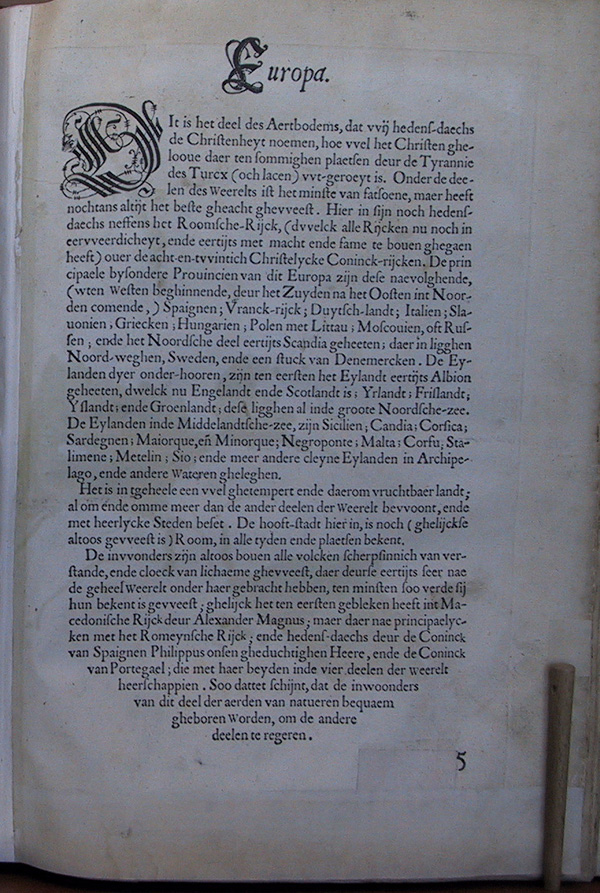 Europa.
DIt is het deel des Aertbodems, dat vvij hedenſ-daechs
de Chriſtenheyt noemen, hoe vvel het Chriſten ghe-
looue daer ten ſommighen plaetſen deur de Tyrannie
des Turcx (och lacen) vvt-geroeyt is. Onder de dee-
len des Weerelts iſt het minſte van fatſoene, maer heeft
nochtans altijt het beſte gheacht ghevveeſt. Hier in ſijn noch hedenſ-
daechs neffens het Roomſche-Rijck, (dvvelck alle Rijcken nu noch in
eervveerdicheyt, ende eertijts met macht ende fame te bouen ghegaen
heeft) ouer de acht-en-tvvintich Chriſtelycke Coninck-rijcken. De prin
cipaele byſondere Prouincien van dit Europa zijn deſe naevolghende,
(wten Weſten beghinnende, deur het Zuyden na het Ooſten int Noor-
den comende,) Spaignen; Vranck-rijck; Duytſch-landt; Italien; Sla-
uonien, Griecken; Hungarien; Polen met Littau; Moſcouien, oft Ruſ-
ſen; ende het Noordſche deel eertijts Scandia geheeten; daer in ligghen
Noord-weghen, Sweden, ende een ſtuck van Denemercken. De Ey-
landen dyer onder-hooren, zijn ten eerſten het Eylandt eertijts Albion
geheeten, dwelck nu Engelandt ende Scotlandt is; Yrlandt; Friſlandt;
Yſlandt; ende Groenlandt; deſe ligghen al inde groote Noordſche-zee.
De Eylanden inde Middelandtſche-zee, zijn Sicilien; Candia; Corſica;
Sardegnen; Maiorque, en̄ Minorque; Negroponte; Malta; Corfu; Sta-
limene; Metelin; Sio; ende meer andere cleyne Eylanden in Archipe-
lago, ende andere Wateren gheleghen.
Het is in tgeheele een vvel ghetempert ende daerom vruchtbaer landt;
al om ende omme meer dan de ander deelen der Weerelt bevvoont, ende
met heerlycke Steden beſet. De hooft-ſtadt hier in, is noch (ghelijckſe
altoos gevveeſt is) Room, in alle tyden ende plaetſen bekent.
De invvonders zijn altoos bouen alle volcken ſcherpſinnich van ver-
ſtande, ende cloeck van lichaeme ghevveeſt, daer deurſe eertijts ſeer nae
de geheel Weerelt onder haer gebracht hebben, ten minſten ſoo verde ſij
hun bekent is gevveeſt; ghelijck het ten eerſten gebleken heeft int Ma-
cedoniſche Rijck deur Alexander Magnus; maer daer nae principaelyc-
ken met het Romeynſche Rijck; ende hedenſ-daechs deur de Coninck
van Spaignen Philippus onſen gheduchtighen Heere, ende de Coninck
van Portegael; die met haer beyden inde vier deelen der weerelt
heerſchappien. Soo dattet ſchijnt, dat de inwoonders
van dit deel der aerden van natueren bequaem
gheboren Worden, om de andere
deelen te regeren.
5